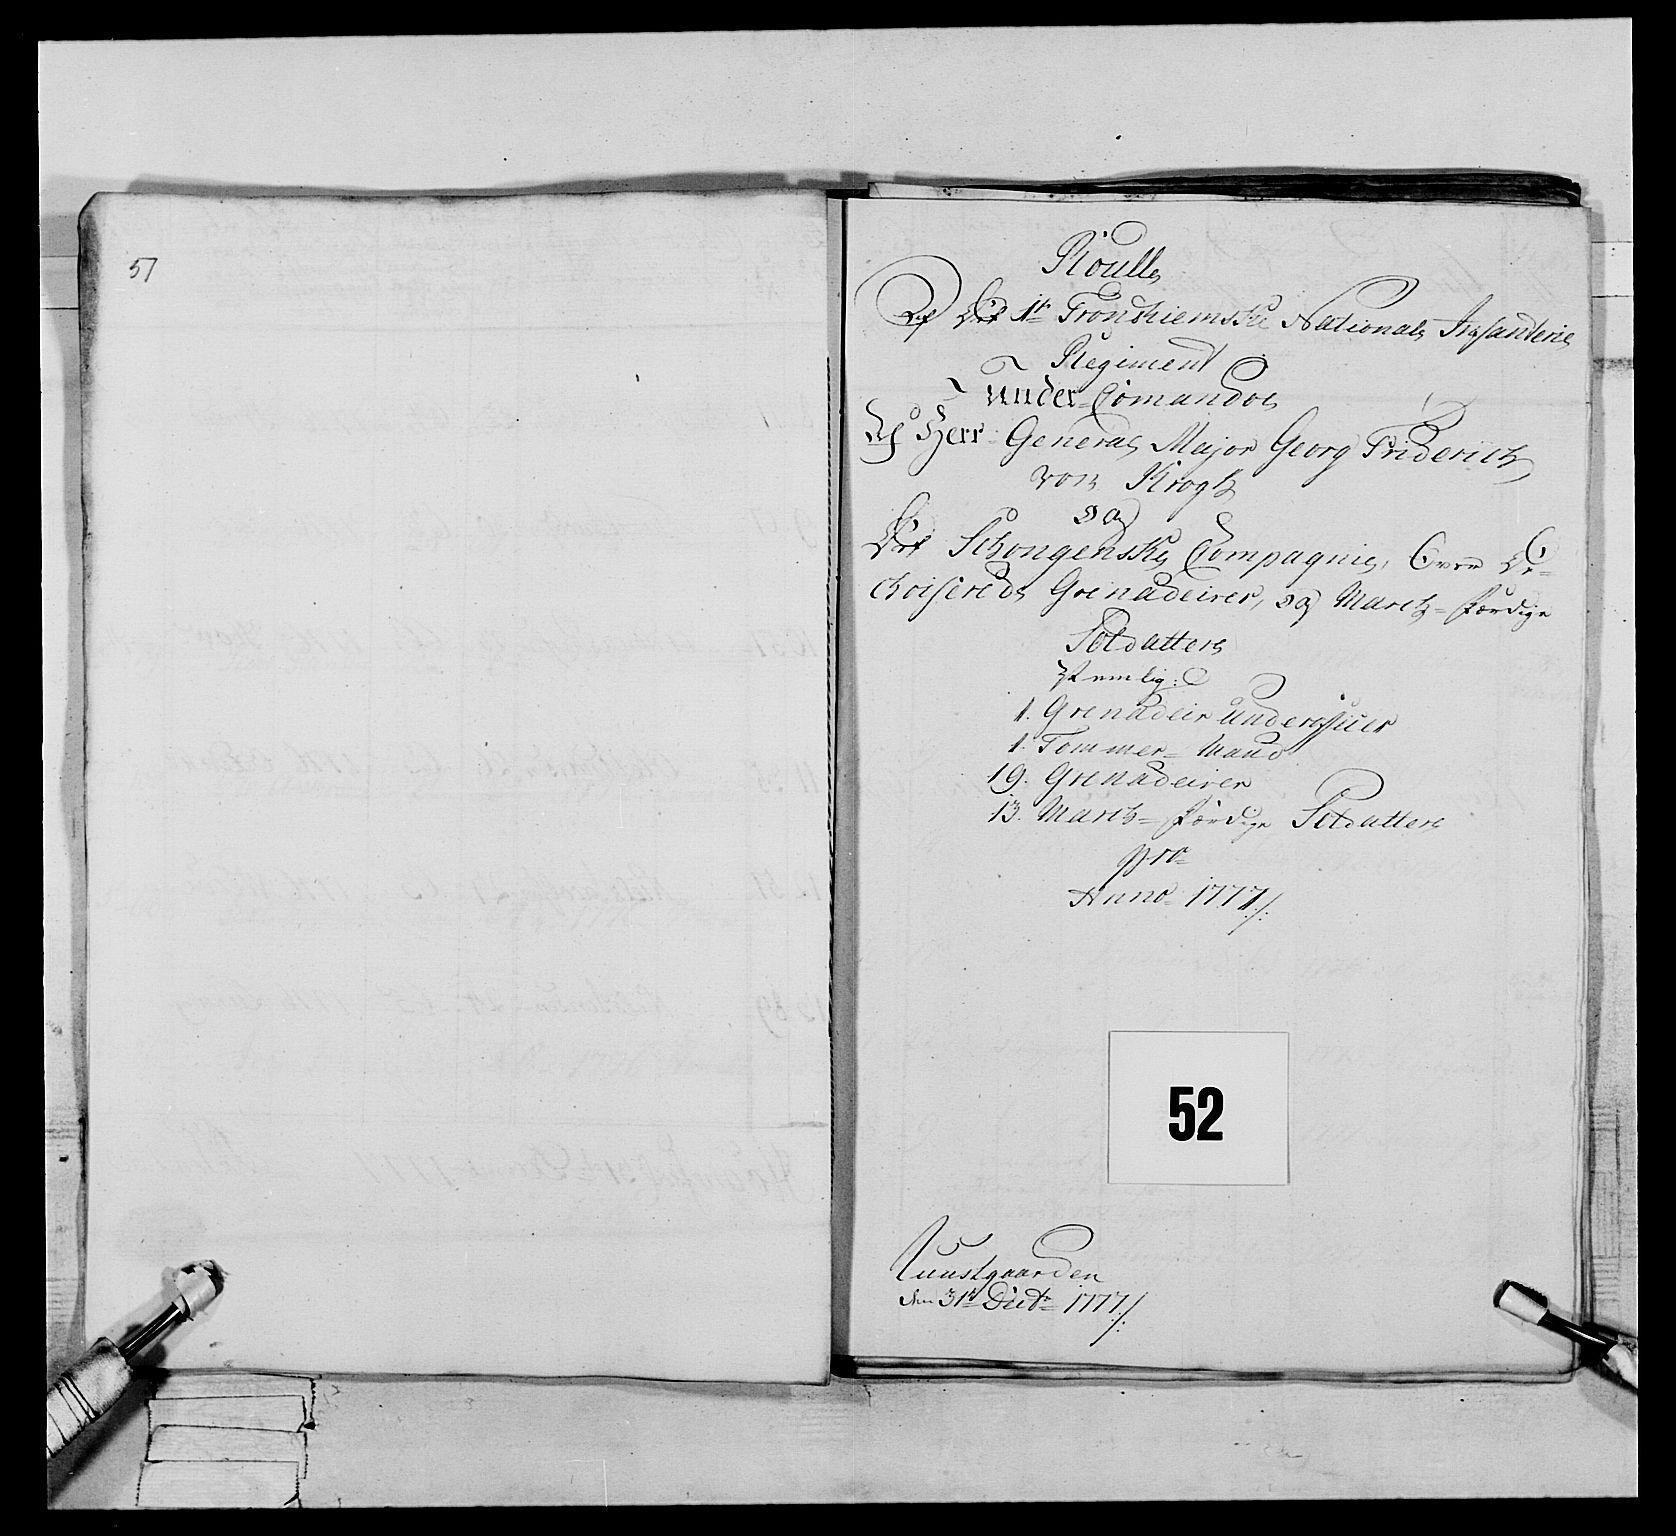 51
Roulle
Af Det 1te Tronhiemske National Infanterie
Regiment
under Comando
Af Herr General Major Georg Friderich
von Krogh
og
Det Schongenske Compagnie, Over De
choiserede Grenadeirer, og March-færdige
Soldatter
Nemlig:
1. Grenadeir underofficer
1. Tømmer-Mand
19. Grenadeirer
13. March-færdige Soldatter
pro
Anno 1777/:
52
den 31te Decbr 1777/: